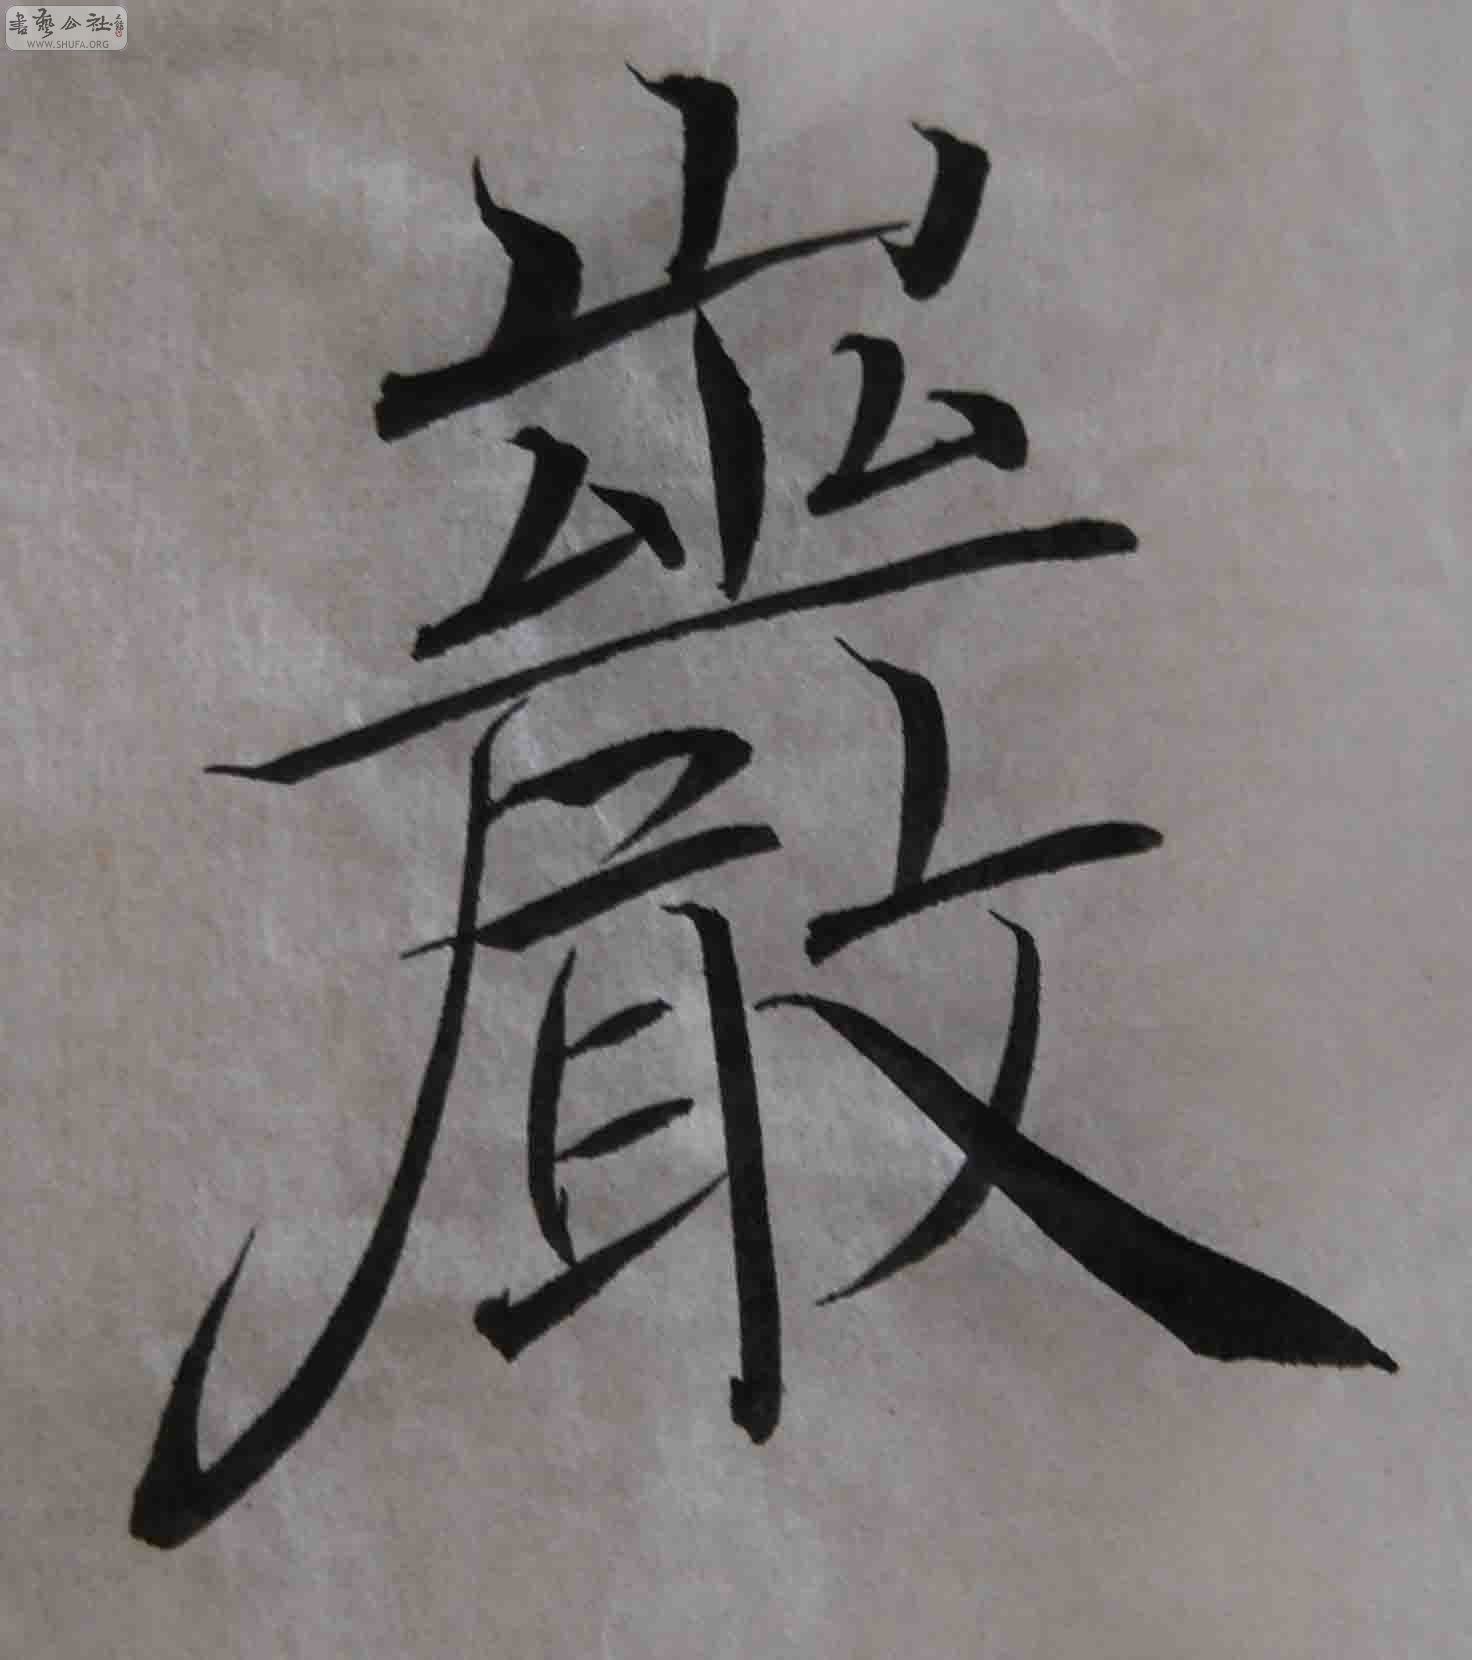 書藝公社
WWW.SHUFA.ORG
巖